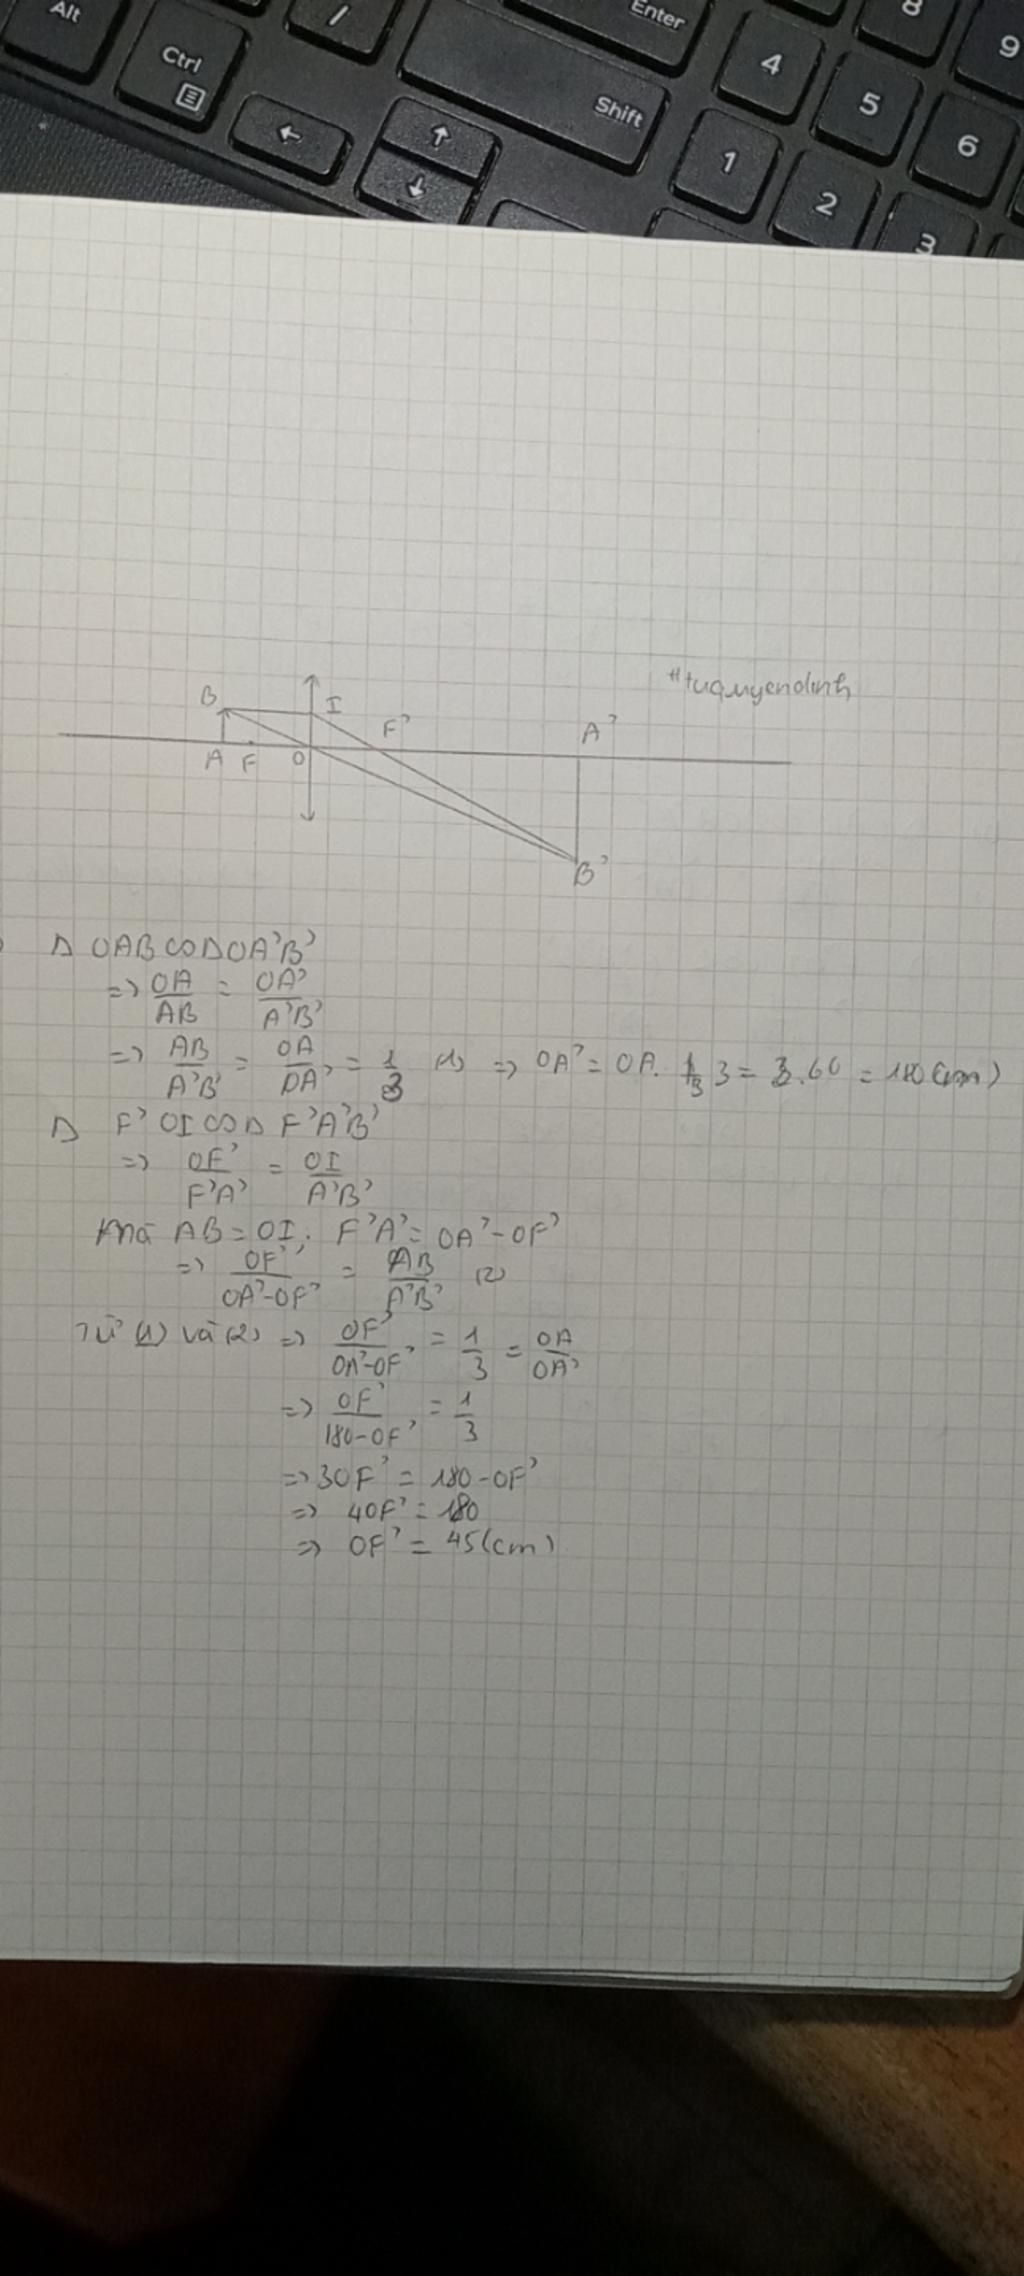 Alt
Ctrl
/
Enter
Shift
←
↑
↓
4
8
9
5
6
1
2
3
#tuquyendinh
B
I
F'
A'
A F O
B'
Δ OAB ∽ Δ OA'B'
=> OA/AB = OA'/A'B'
=> AB/A'B' = OA/OA' = 1/3 (1) => OA' = OA. 3 = 3.60 = 180(cm)
Δ F'OI ∽ Δ F'A'B'
=> OF'/F'A' = OI/A'B'
Mà AB = OI; F'A' = OA' - OF'
=> OF'/OA'-OF' = AB/A'B' (2)
Từ (1) và (2) => OF'/OA'-OF' = 1/3 = OA/OA'
=> OF'/180-OF' = 1/3
=> 3OF' = 180 - OF'
=> 4OF' = 180
=> OF' = 45(cm)